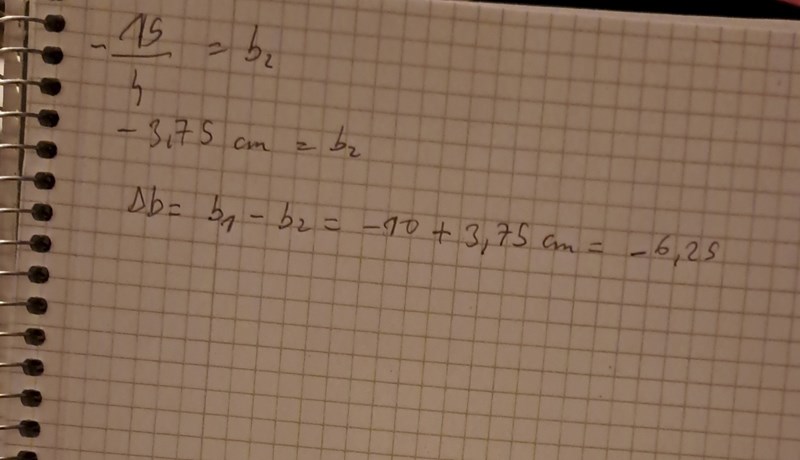 - 15/4 = b₂
- 3,75 cm = b₂
Δb = b₁ - b₂ = -10 + 3,75 cm = -6,25